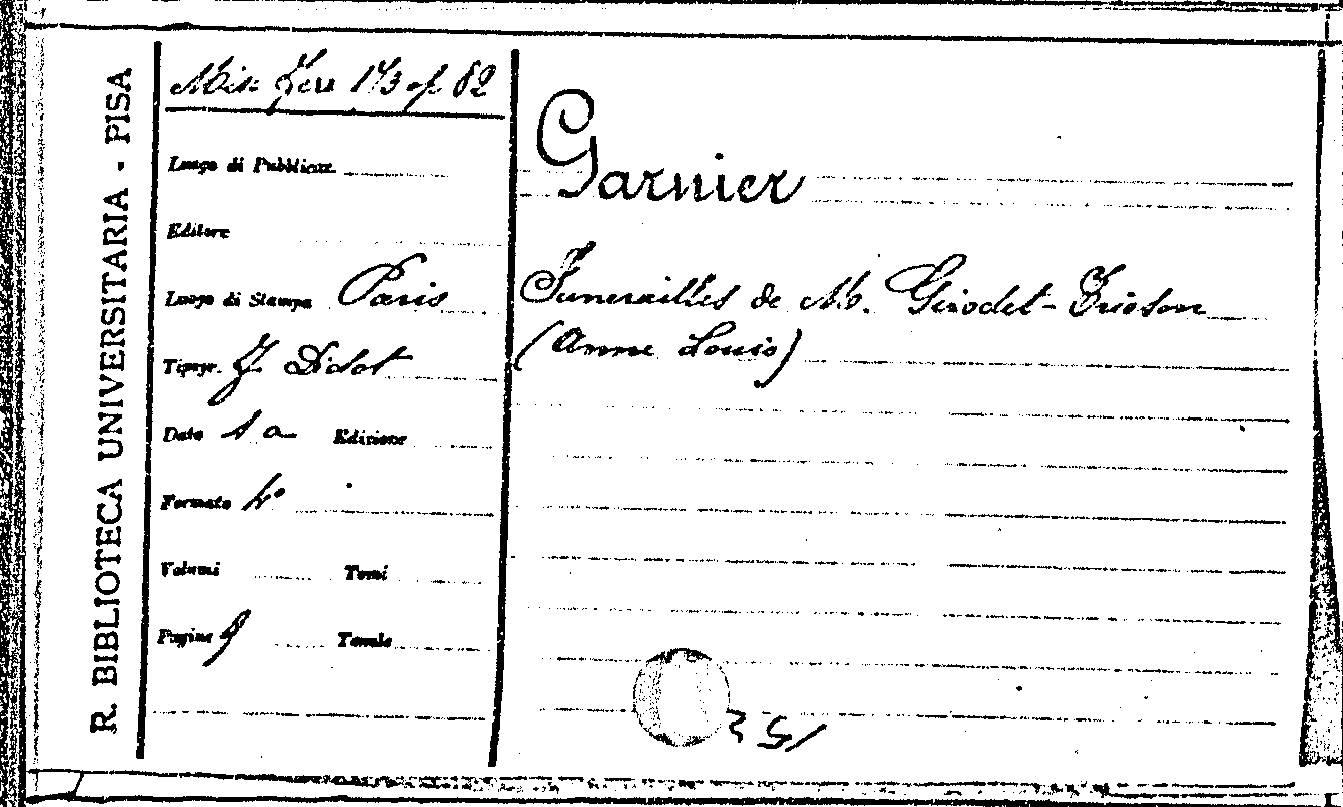 R. BIBLIOTECA UNIVERSITARIA - PISA
Mis. Ferr 173 op 82
Luogo di Pubblicaz.
Editore
Luogo di Stampa Paris
Tipogr. J. Didot
Data s a Edizione
Formato 4°
Volumi Tomi
Pagine 8 Tavole
Garnier
Funerailles de M. Girodet-Trioson
(Anne Louis)